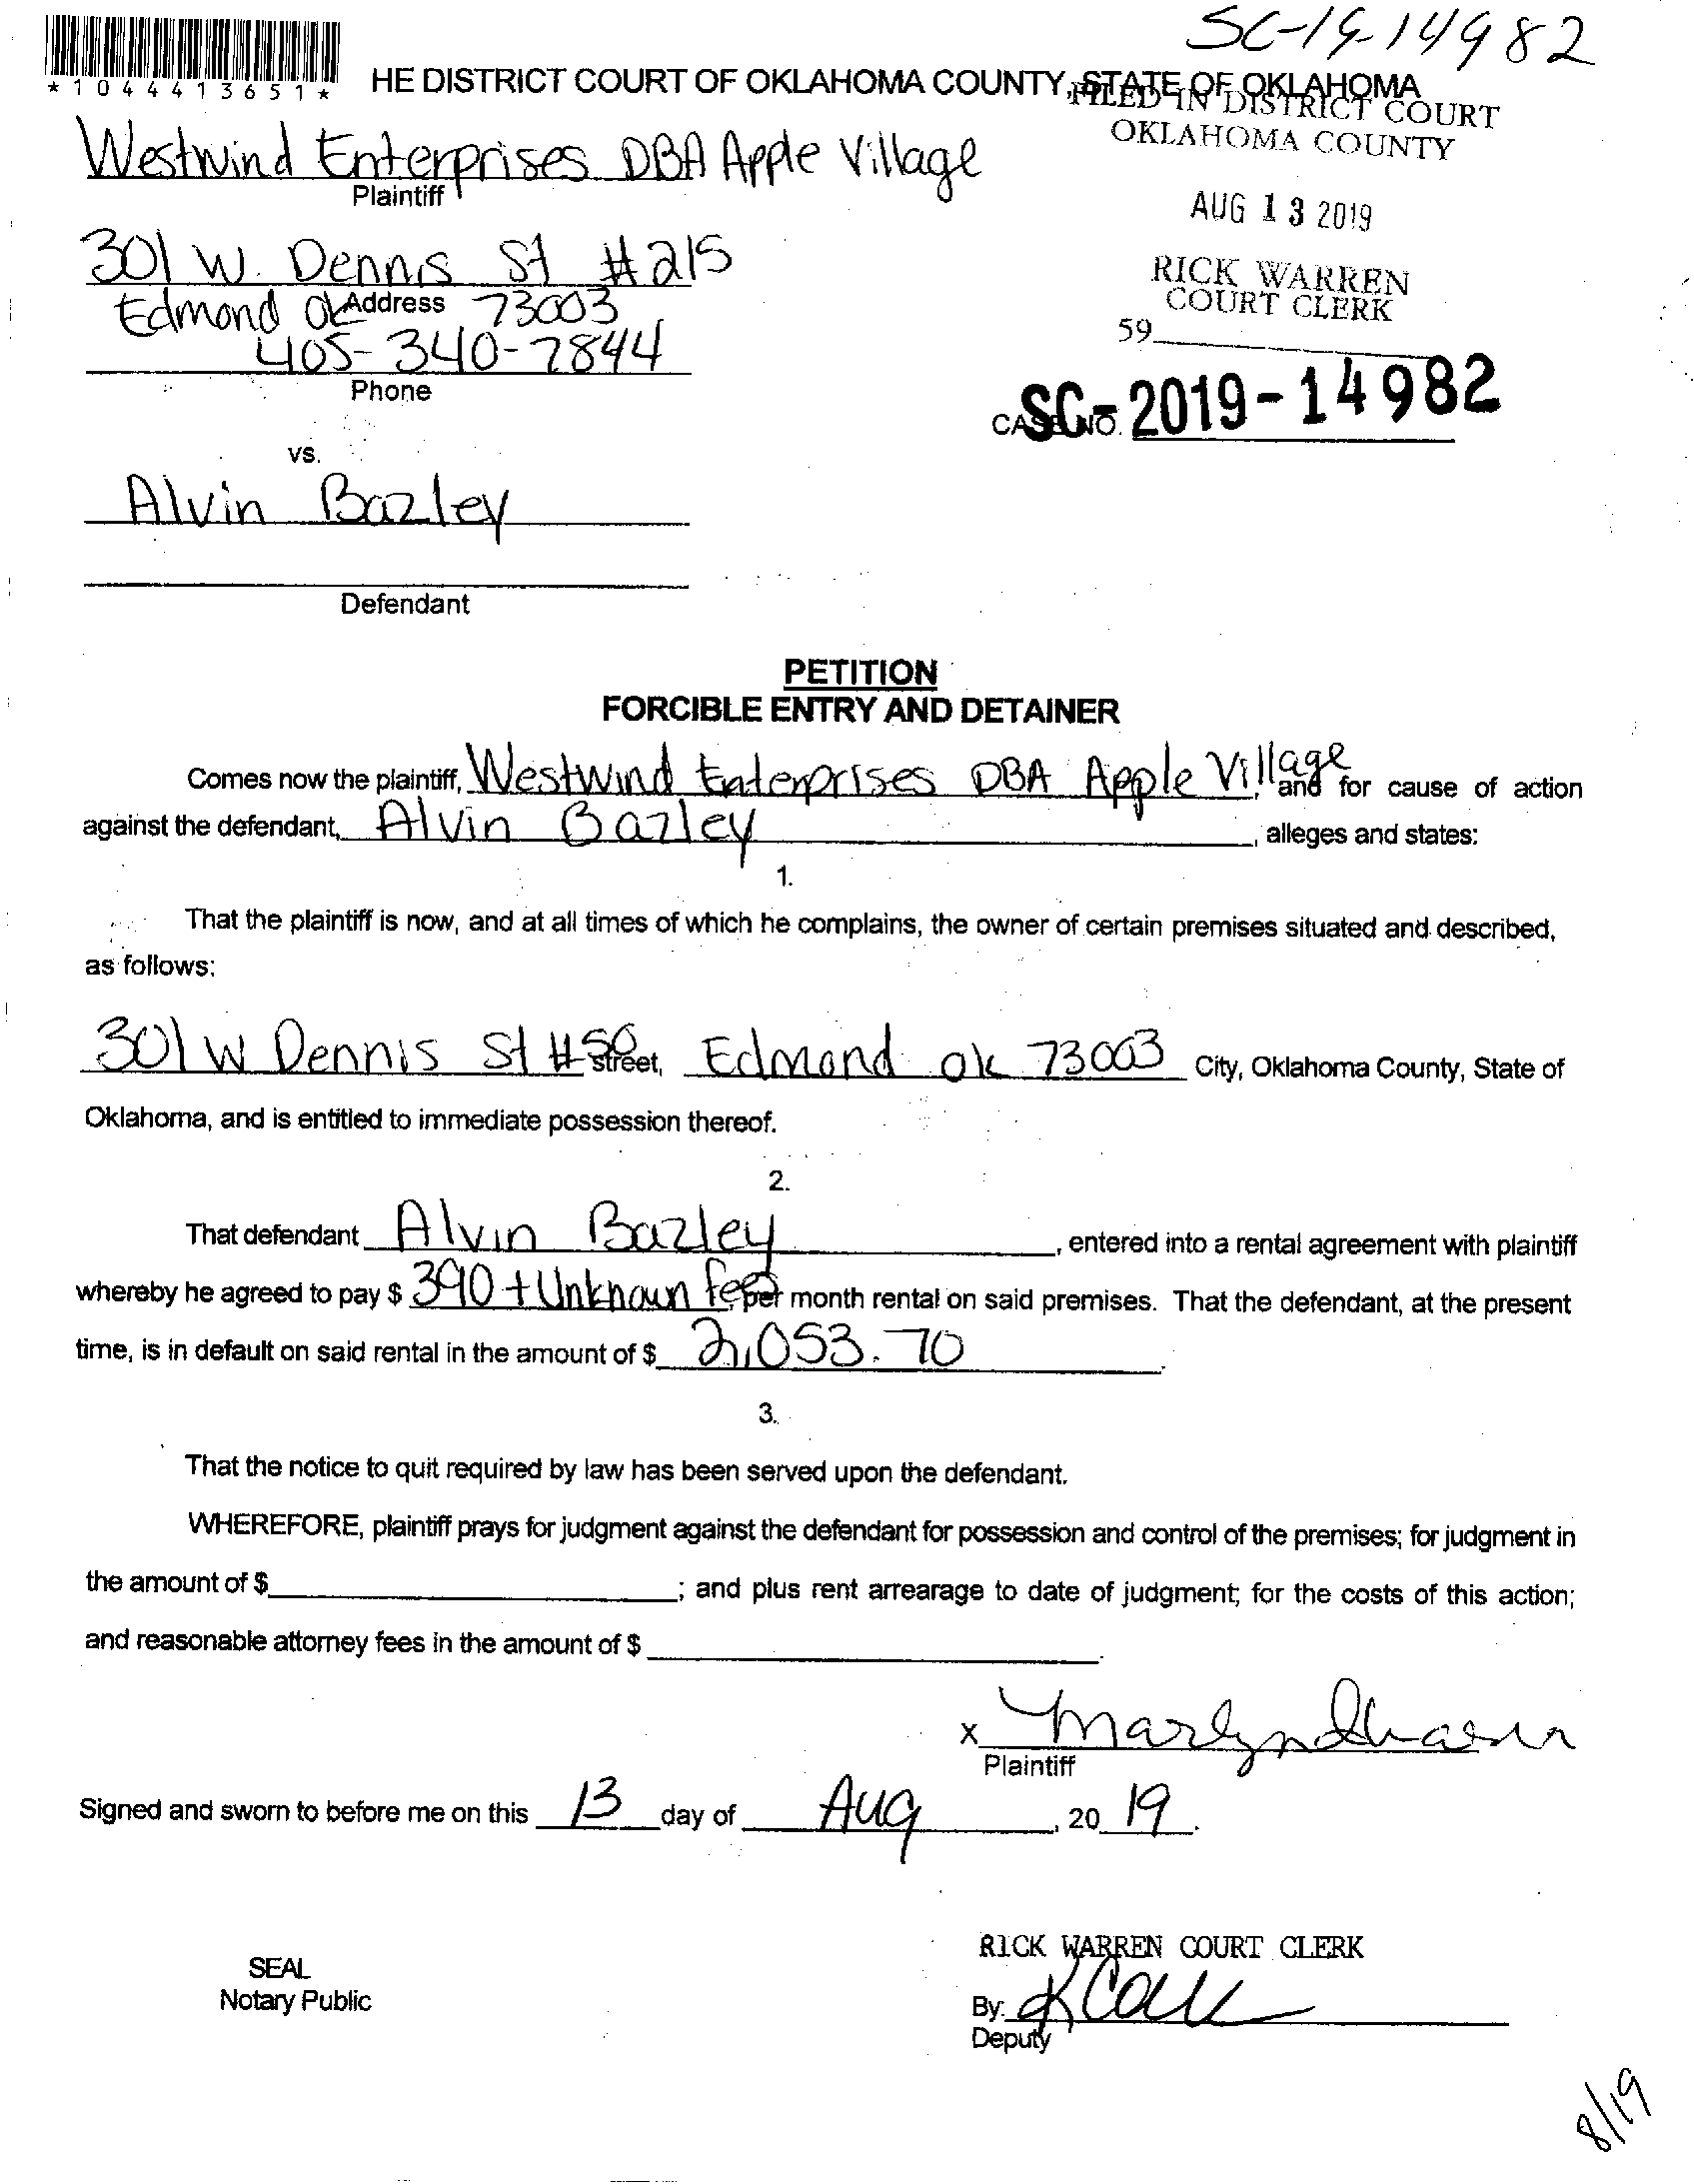 SC-19-14982
*1044413651*
HE DISTRICT COURT OF OKLAHOMA COUNTY, STATE OF OKLAHOMA
FILED IN DISTRICT COURT
OKLAHOMA COUNTY
Westwind Enterprises DBA Apple Village
Plaintiff
AUG 13 2019
301 W. Dennis St #215
Edmond OK Address 73003
RICK WARREN
COURT CLERK
405-340-7844
59
Phone
CASE NO. SC-2019-14982
vs.
Alvin Bazley
Defendant
PETITION
FORCIBLE ENTRY AND DETAINER
Comes now the plaintiff, Westwind Enterprises DBA Apple Village, and for cause of action
against the defendant, Alvin Bazley, alleges and states:
1.
That the plaintiff is now, and at all times of which he complains, the owner of certain premises situated and described,
as follows:
301 W Dennis St #50 Street, Edmond ok 73003 City, Oklahoma County, State of
Oklahoma, and is entitled to immediate possession thereof.
2.
That defendant Alvin Bazley, entered into a rental agreement with plaintiff
whereby he agreed to pay $ 390 + Unknown Fees per month rental on said premises. That the defendant, at the present
time, is in default on said rental in the amount of $ 2,053.70.
3.
That the notice to quit required by law has been served upon the defendant.
WHEREFORE, plaintiff prays for judgment against the defendant for possession and control of the premises; for judgment in
the amount of $ ; and plus rent arrearage to date of judgment; for the costs of this action;
and reasonable attorney fees in the amount of $ .
X
Plaintiff
Signed and sworn to before me on this 13 day of Aug, 20 19.
RICK WARREN COURT CLERK
SEAL
Notary Public
By:
Deputy
8/19